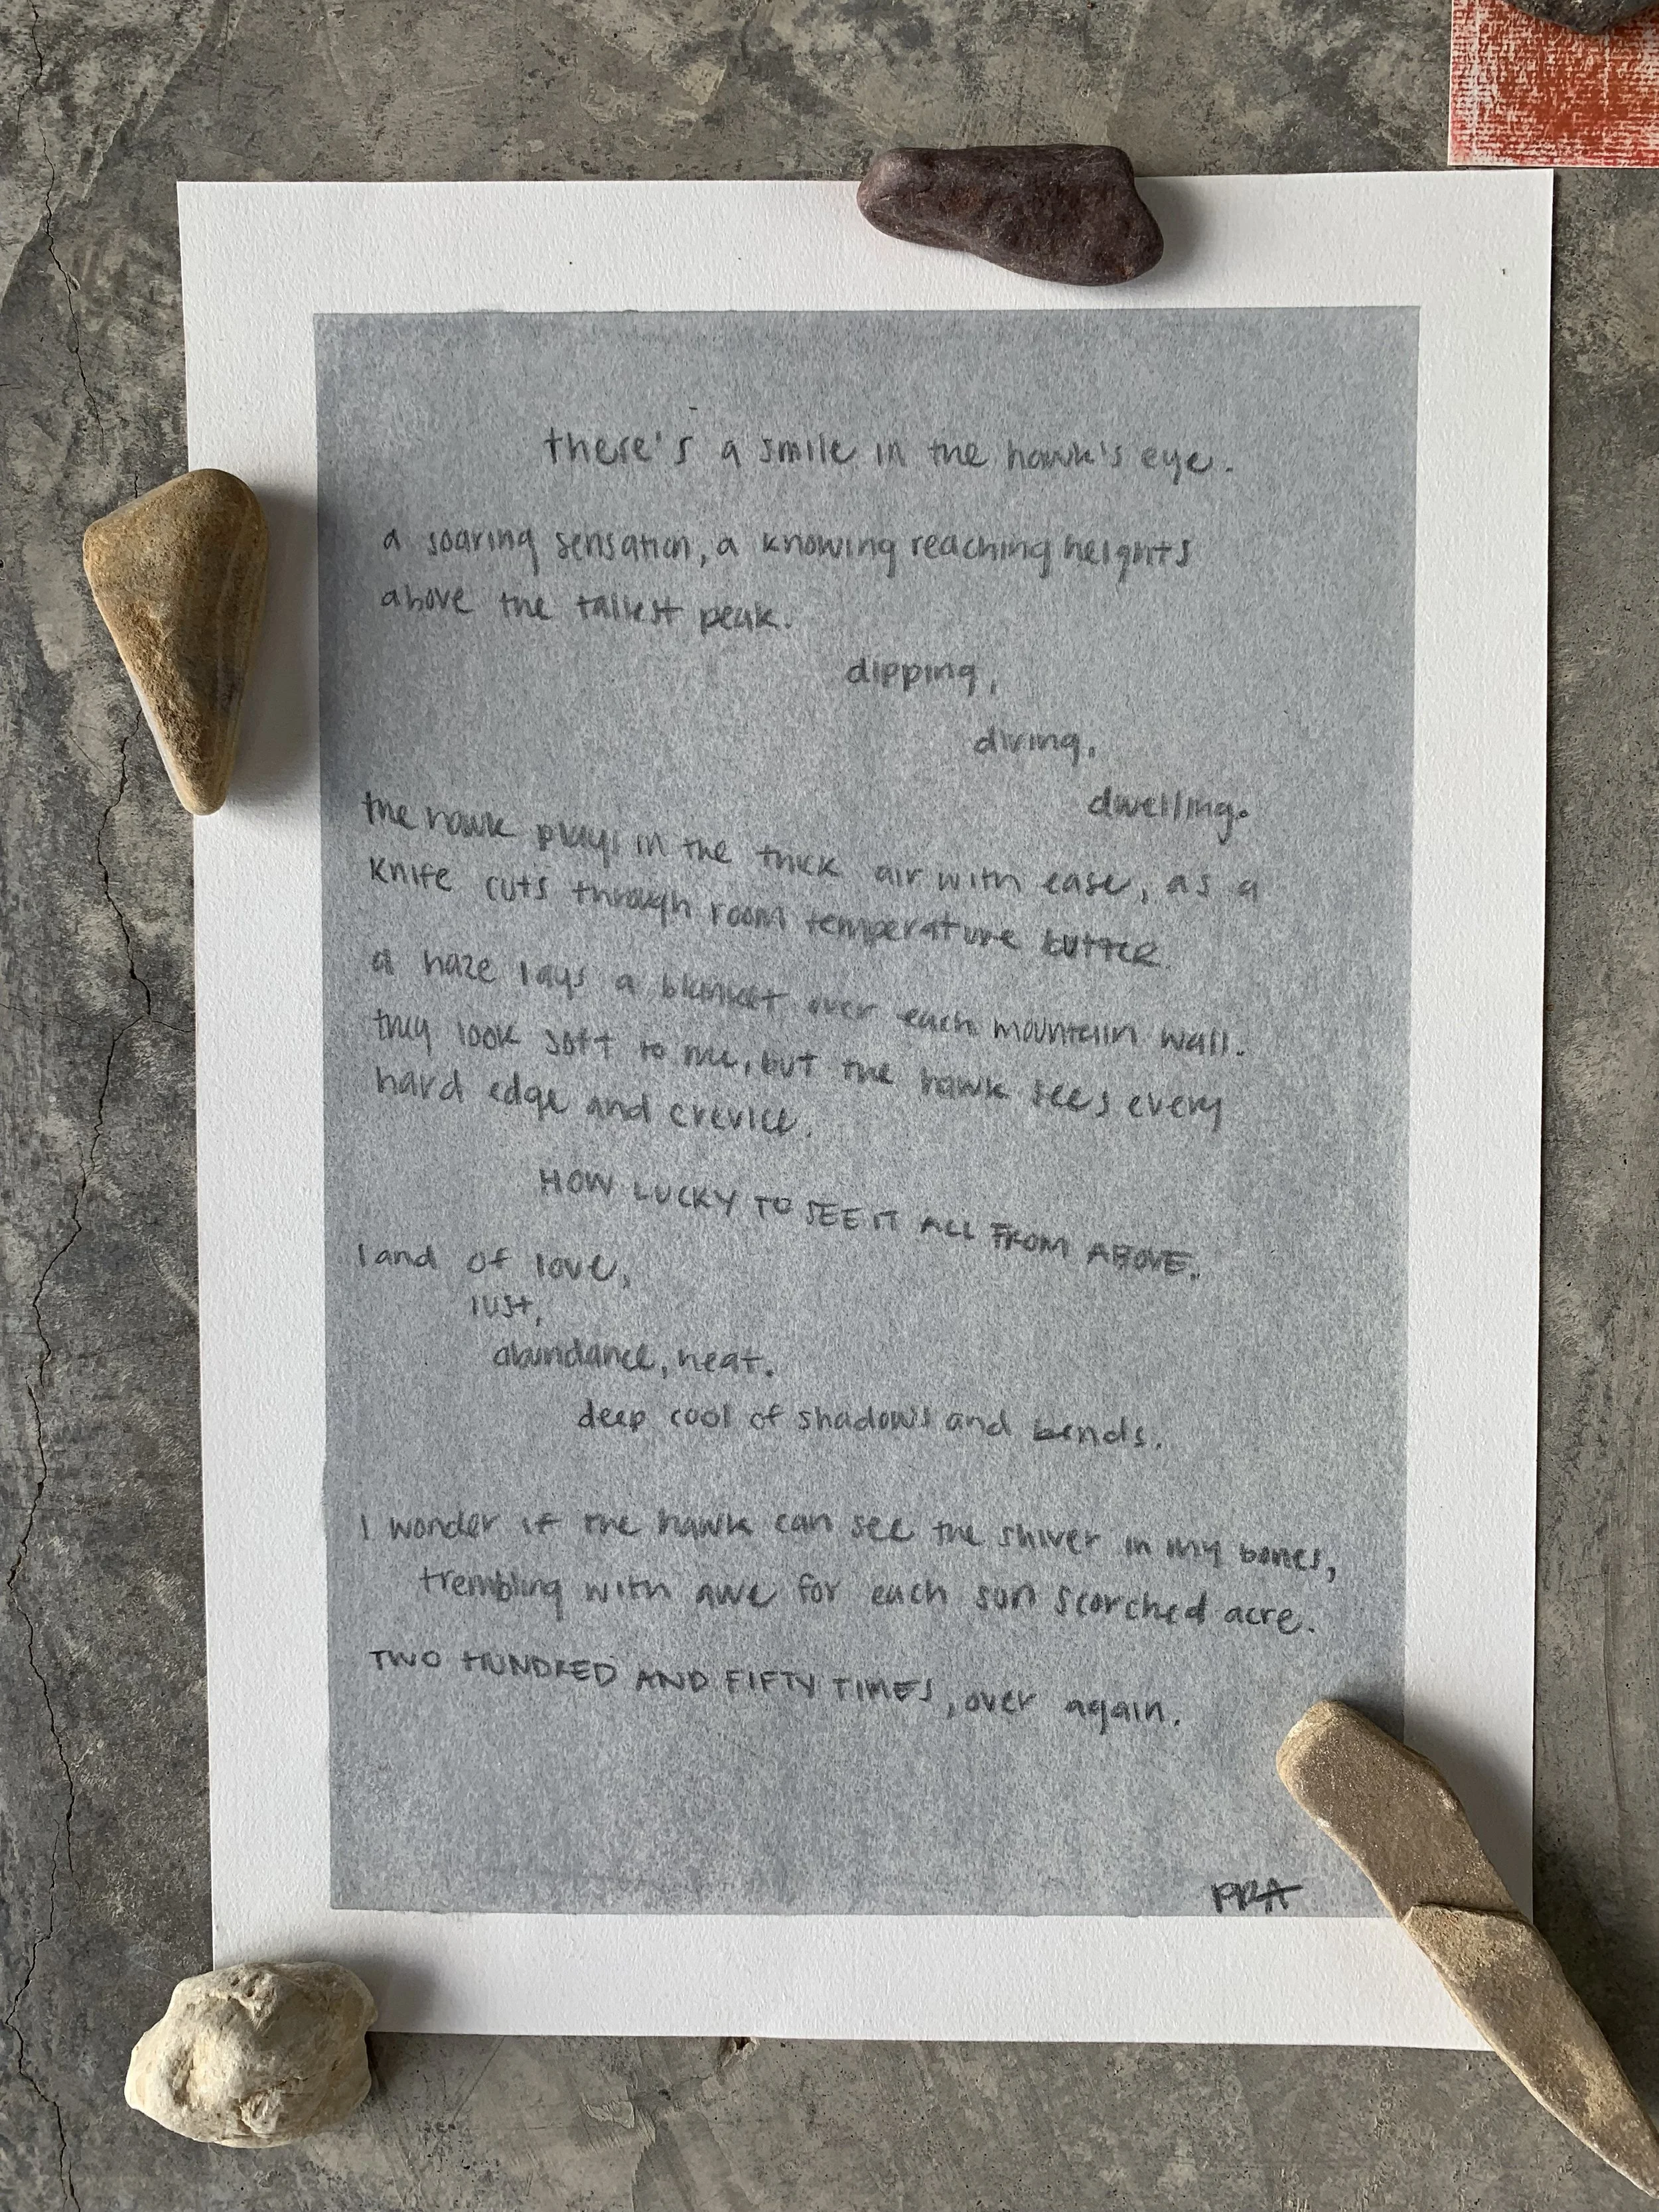 there's a smile in the hawk's eye.
a soaring sensation, a knowing reaching heights
above the tallest peak.
dipping,
diving,
dwelling.
the hawk plays in the thick air with ease, as a
knife cuts through room temperature butter.
a haze lays a blanket over each mountain wall.
they look soft to me, but the hawk sees every
hard edge and crevice.
HOW LUCKY TO SEE IT ALL FROM ABOVE.
land of love,
lust,
abundance, heat.
deep cool of shadows and bends.
I wonder if the hawk can see the shiver in my bones,
trembling with awe for each sun scorched acre.
TWO HUNDRED AND FIFTY TIMES, over again.
PRA